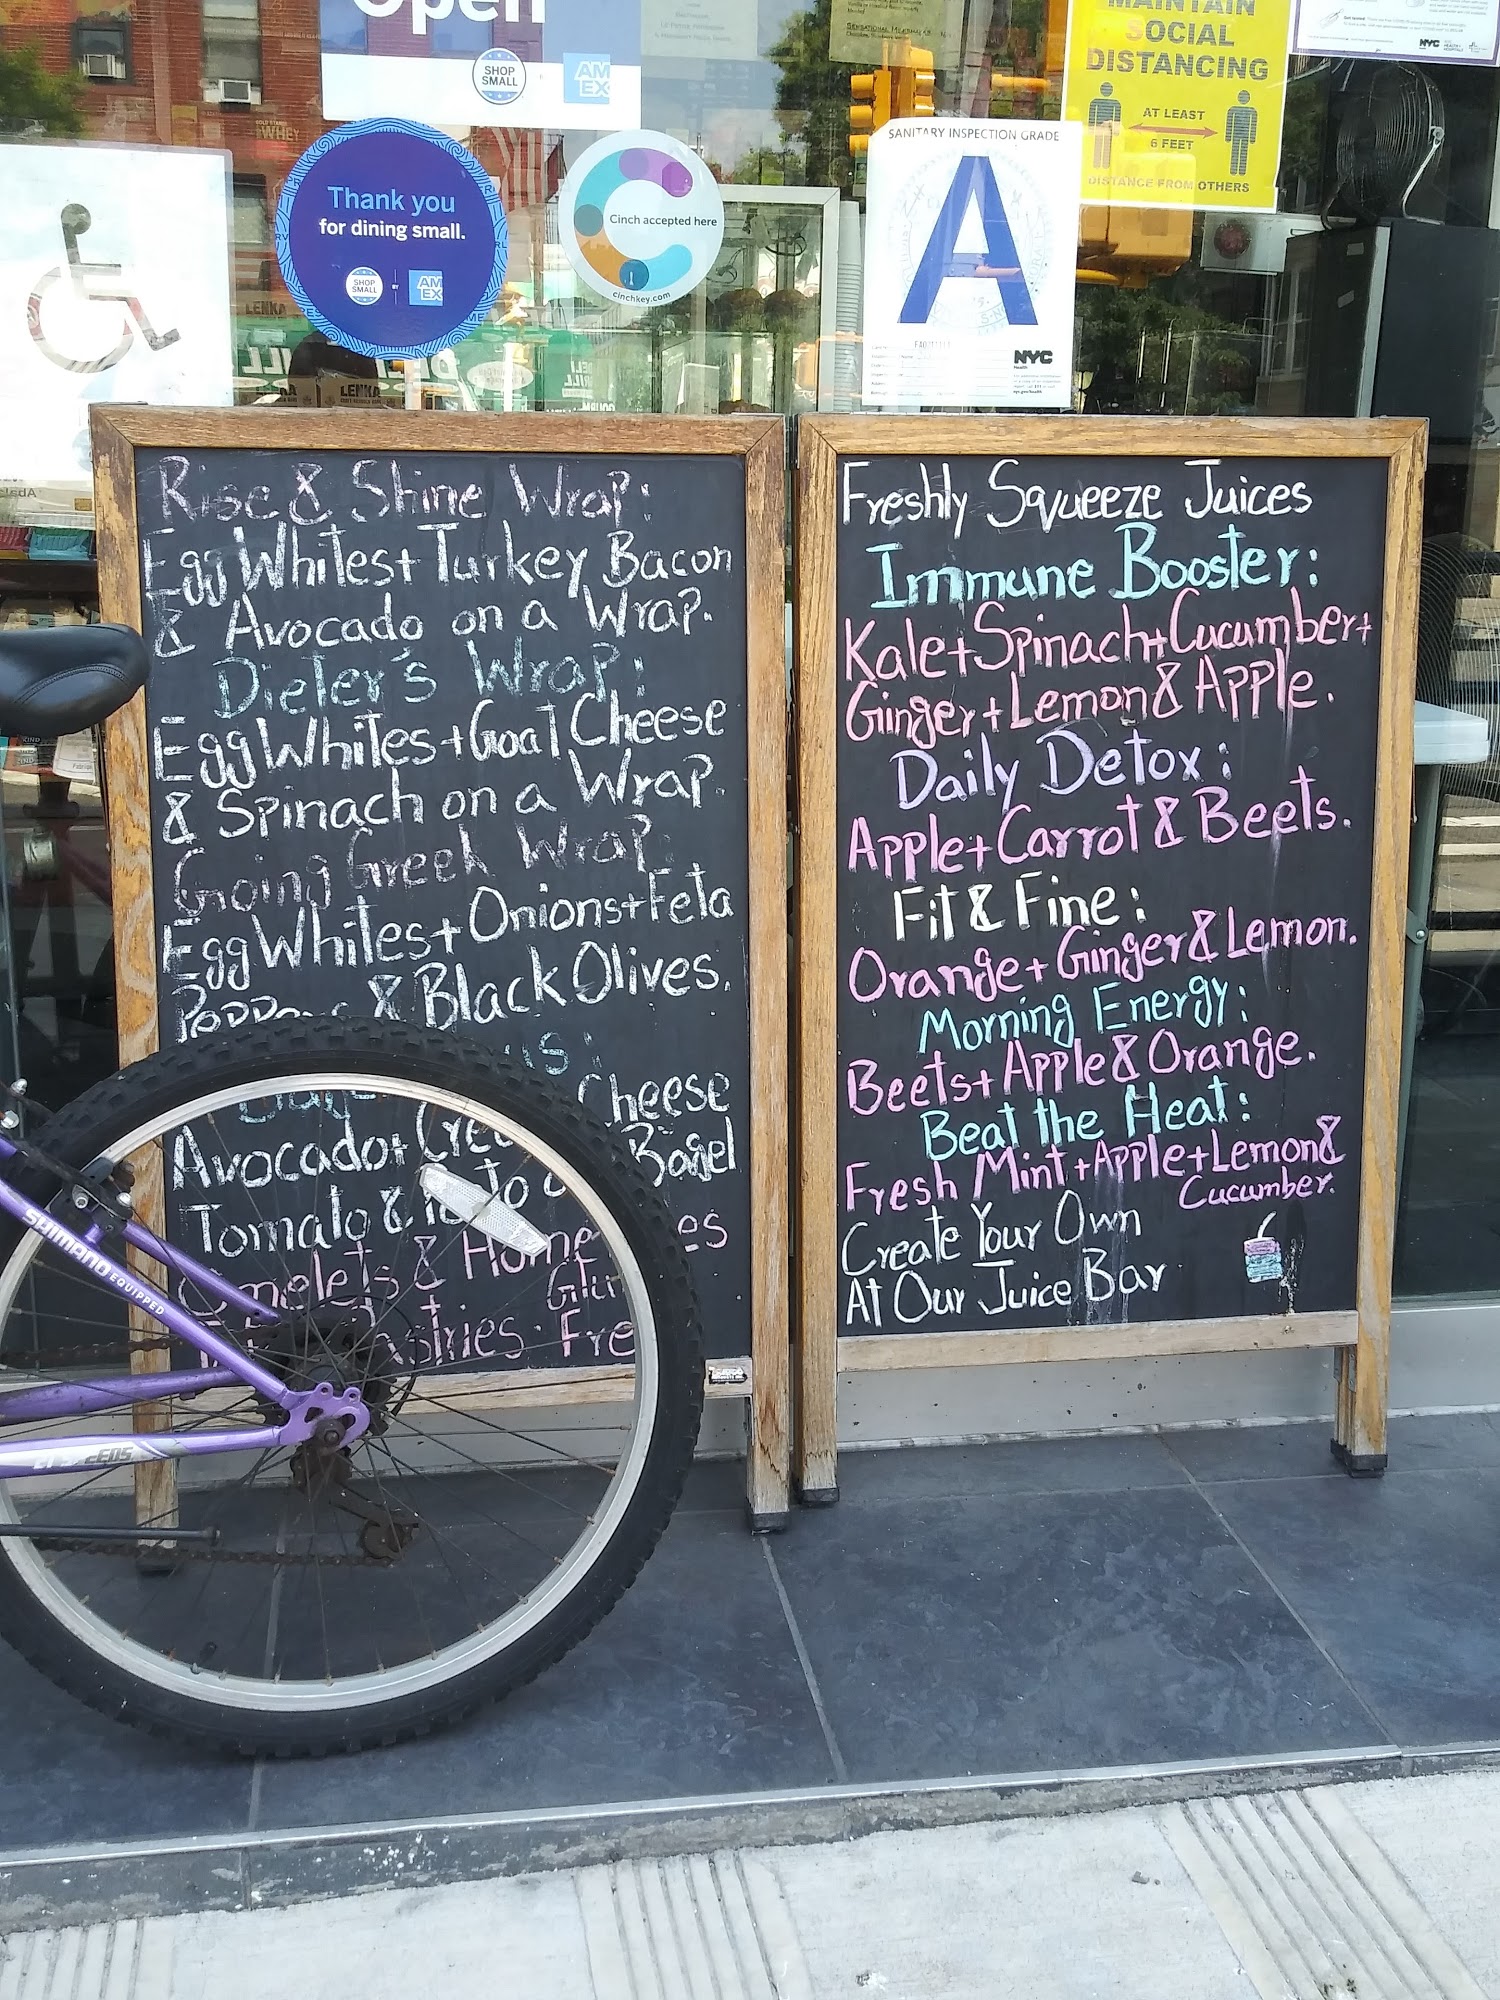 Open
SHOP
SMALL
AM
EX
Thank you
for dining small.
SHOP
SMALL
BY
AM
EX
Cinch accepted here
cinchkey.com
SANITARY INSPECTION GRADE
A
NYC
Health
MAINTAIN
SOCIAL
DISTANCING
AT LEAST
6 FEET
DISTANCE FROM OTHERS
NYC
LENKA
Rise & Shine Wrap:
Egg Whites + Turkey Bacon
& Avocado on a Wrap.
Dieter's Wrap:
Egg Whites + Goat Cheese
& Spinach on a Wrap.
Going Greek Wrap.
Egg Whites + Onions + Feta
& Black Olives.
Cheese
Avocado +
Bagel
Tomato &
Omelets & Home
Freshly Squeeze Juices
Immune Booster:
Kale + Spinach + Cucumber +
Ginger + Lemon & Apple.
Daily Detox:
Apple + Carrot & Beets.
Fit & Fine:
Orange + Ginger & Lemon.
Morning Energy:
Beets + Apple & Orange.
Beat the Heat:
Fresh Mint + Apple + Lemon &
Cucumber.
Create Your Own
At Our Juice Bar
SHIMANO EQUIPPED